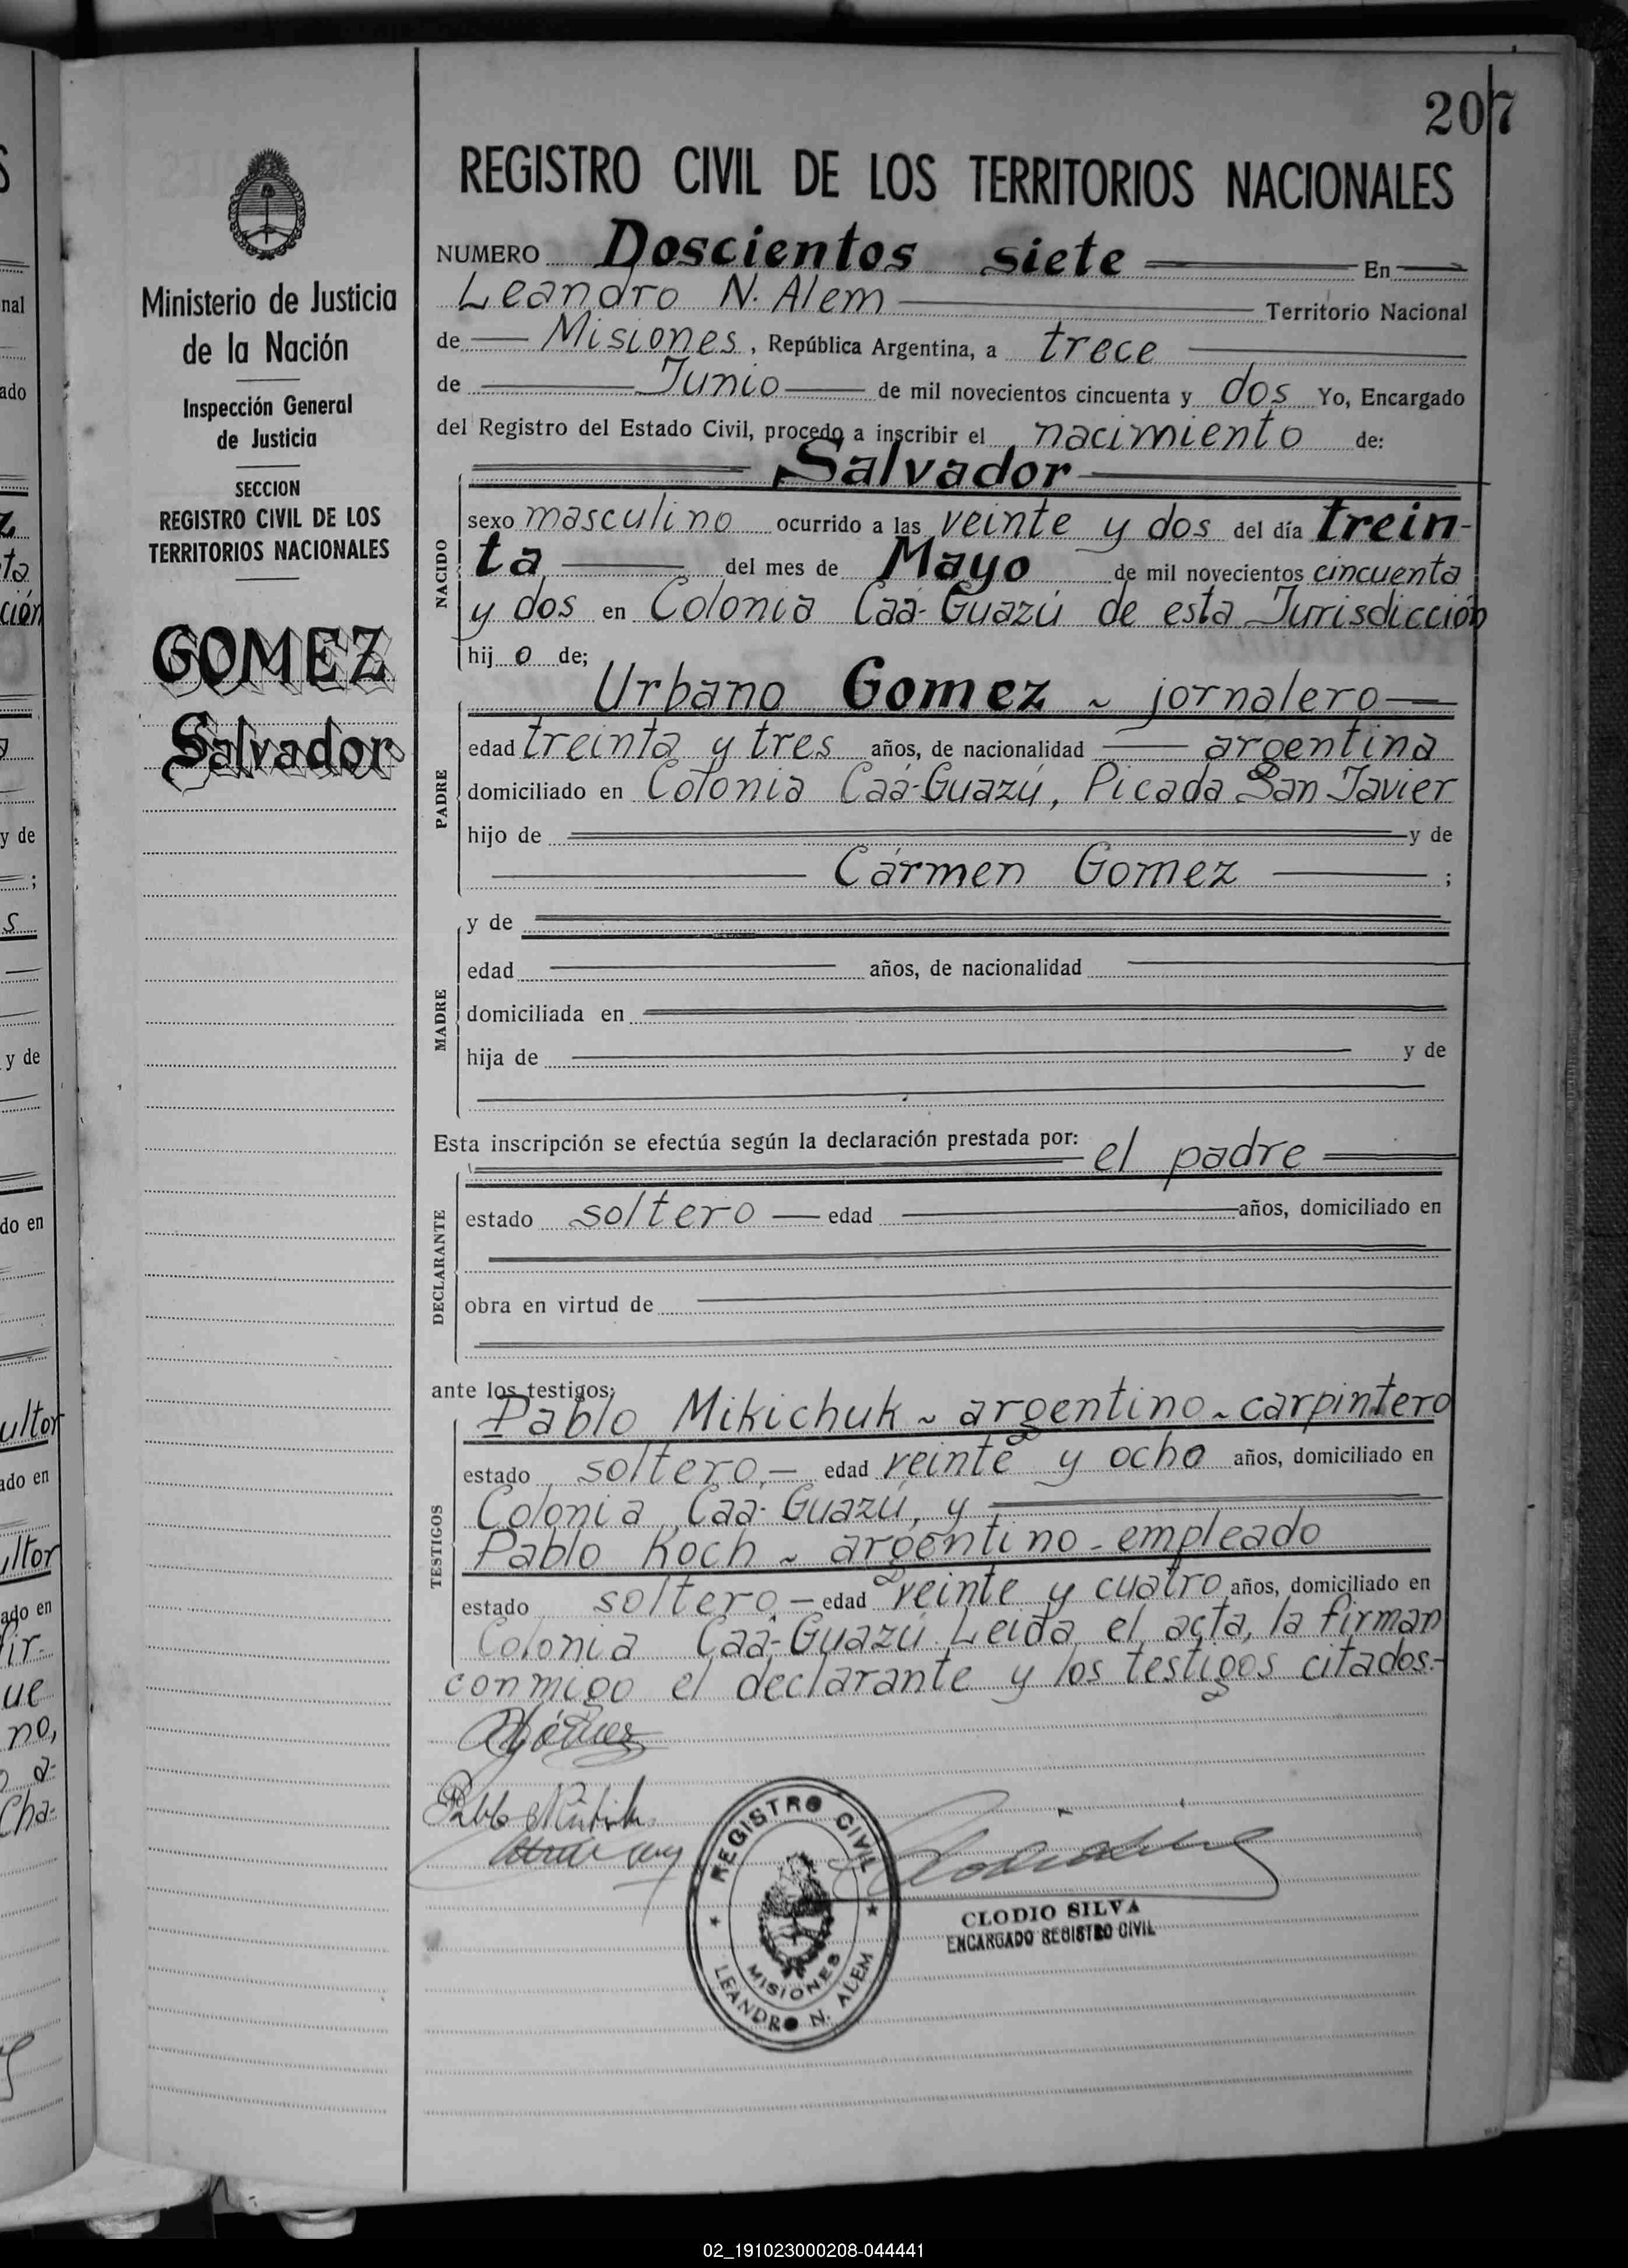 207
Ministerio de Justicia
de la Nación
Inspección General
de Justicia
SECCION
REGISTRO CIVIL DE LOS
TERRITORIOS NACIONALES
GOMEZ
Salvador
REGISTRO CIVIL DE LOS TERRITORIOS NACIONALES
NUMERO Doscientos siete En
Leandro N. Alem Territorio Nacional
de Misiones, República Argentina, a trece
de Junio de mil novecientos cincuenta y dos Yo, Encargado
del Registro del Estado Civil, procedo a inscribir el nacimiento de:
Salvador
NACIDO
sexo masculino ocurrido a las veinte y dos del día trein-
ta del mes de Mayo de mil novecientos cincuenta
y dos en Colonia Caá-Guazú de esta Jurisdicción
hij o de;
Urbano Gomez ~ jornalero
PADRE
edad treinta y tres años, de nacionalidad argentina
domiciliado en Colonia Caá-Guazú, Picada San Javier
hijo de y de
Cármen Gomez ;
y de
MADRE
edad años, de nacionalidad
domiciliada en
hija de y de
Esta inscripción se efectúa según la declaración prestada por: el padre
DECLARANTE
estado soltero edad años, domiciliado en
obra en virtud de
ante los testigos;
TESTIGOS
Pablo Mikichuk ~ argentino ~ carpintero
estado soltero.- edad veinte y ocho años, domiciliado en
Colonia Caá-Guazú, y
Pablo Koch ~ argentino - empleado
estado soltero.- edad veinte y cuatro años, domiciliado en
Colonia Caá-Guazú. Leida el acta, la firman
conmigo el declarante y los testigos citados.-
Pablo
REGISTRO CIVIL
MISIONES
LEANDRO N. ALEM
CLODIO SILVA
ENCARGADO REGISTRO CIVIL
02_191023000208-044441